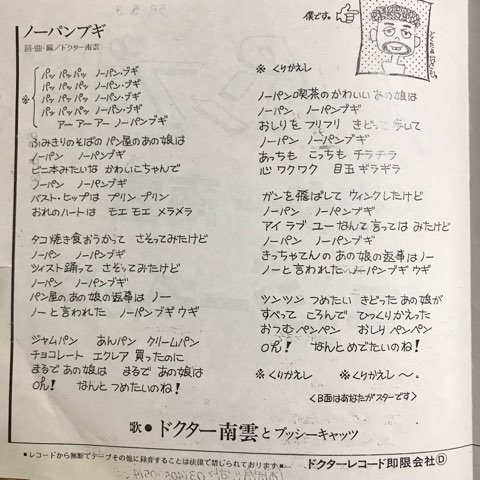 僕です。
ノーパンブギ
詞・曲・編/ドクター南雲
※
パッ パッパッ ノーパン・ブギ
パッ パッパッ ノーパン・ブギ
パッ パッパッ ノーパン・ブギ
パッ パッパッ ノーパン・ブギ
アー アー アー ノーパンブギ
ふみきりのそばの パン屋のあの娘は
ノーパン ノーパンブギ
ビニ本みたいな かわいこちゃんで
ノーパン ノーパンブギ
バスト・ヒップは プリン プリン
おれのハートは モエ モエ メラメラ
タコ焼き食おうかって さそってみたけど
ノーパン ノーパンブギ
ツイスト踊って さそってみたけど
ノーパン ノーパンブギ
パン屋のあの娘の返事は ノー
ノーと言われた ノーパンブギ ウギ
ジャムパン あんパン クリームパン
チョコレート エクレア 買ったのに
まるで あの娘は まるで あの娘は
Oh! なんとつめたいのね!
※ くりかえし
ノーパン喫茶のかわいい あの娘は
ノーパン ノーパンブギ
おしりを フリフリ きどって歩いて
ノーパン ノーパンブギ
あっちも こっちも チラチラ
心 ワクワク 目玉 ギラギラ
ガンを飛ばして ウィンクしたけど
ノーパン ノーパンブギ
アイ ラブ ユーなんて言っては みたけど
ノーパン ノーパンブギ
きっちゃてんの あの娘の返事はノー
ノーと言われた ノーパンブギ ウギ
ツンツン つめたい きどった あの娘が
すべって ころんで ひっくりかえった
おつむ ペンペン おしり ペンペン
Oh! なんと めでたいのね!
※ くりかえし ※ くりかえし 〜。
<B面はあなたがスターです>
歌●ドクター南雲とプッシーキャッツ
■レコードから無断でテープその他に録音することは法律で禁じられております■
ドクターレコード即限会社Ⓓ